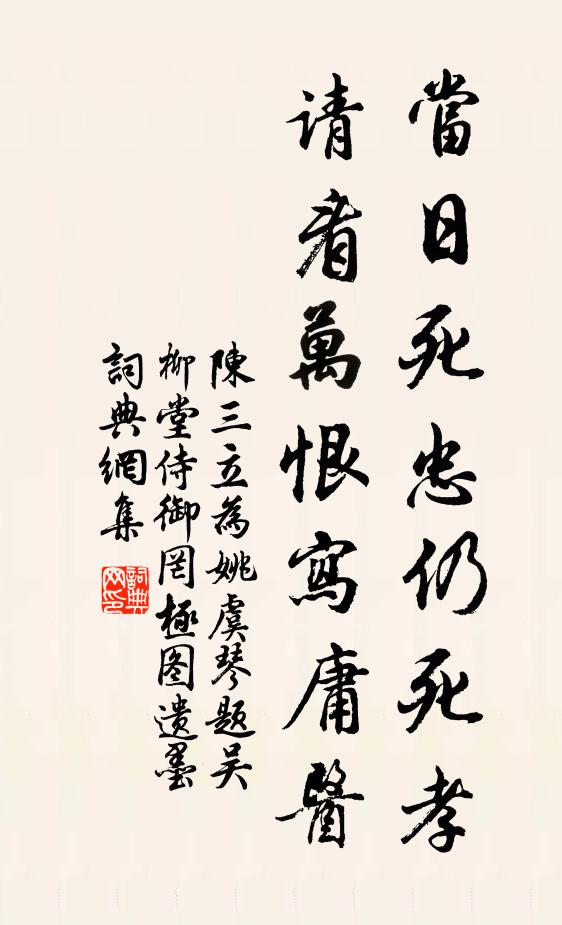 當日死忠仍死孝
请看萬恨寫庸醫
陳三立為姚虞琴題吴
柳堂侍御罔極图遗墨
詞典網集
詞典网印